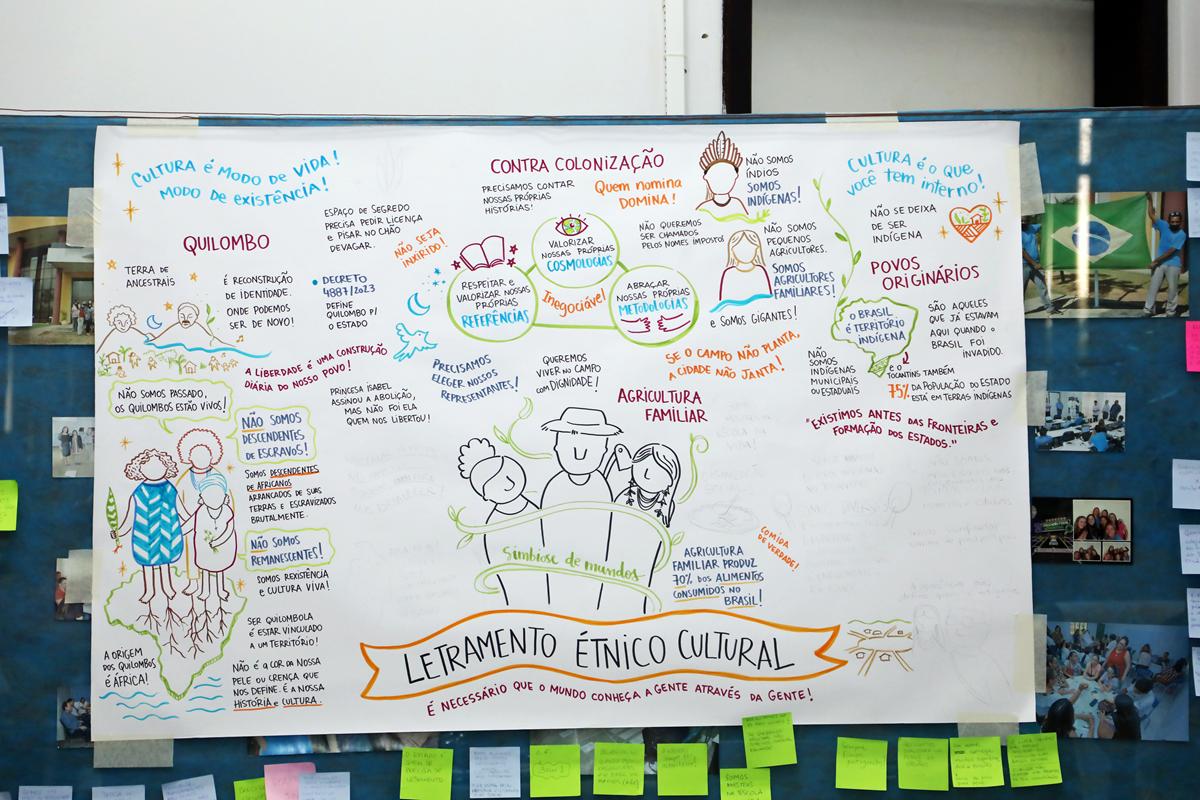 CULTURA É MODO DE VIDA!
MODO DE EXISTÊNCIA!
QUILOMBO
TERRA DE
ANCESTRAIS
É RECONSTRUÇÃO
DE IDENTIDADE.
ONDE PODEMOS
SER DE NOVO!
ESPAÇO DE SEGREDO
PRECISA PEDIR LICENÇA
E PISAR NO CHÃO
DEVAGAR.
NÃO SEJA
INXIRIDO!
• DECRETO
4887/2023
DEFINE
QUILOMBO P/
O ESTADO
A LIBERDADE É UMA CONSTRUÇÃO
DIÁRIA DO NOSSO POVO!
PRINCESA ISABEL
ASSINOU A ABOLIÇÃO,
MAS NÃO FOI ELA
QUEM NOS LIBERTOU!
NÃO SOMOS PASSADO,
OS QUILOMBOS ESTÃO VIVOS!
NÃO SOMOS
DESCENDENTES
DE ESCRAVOS!
SOMOS DESCENDENTES
DE AFRICANOS
ARRANCADOS DE SUAS
TERRAS E ESCRAVIZADOS
BRUTALMENTE.
NÃO SOMOS
REMANESCENTES!
SOMOS REXISTÊNCIA
E CULTURA VIVA!
SER QUILOMBOLA
É ESTAR VINCULADO
A UM TERRITÓRIO!
A ORIGEM
DOS QUILOMBOS
É ÁFRICA!
NÃO É A COR DA NOSSA
PELE OU CRENÇA QUE
NOS DEFINE. É A NOSSA
HISTÓRIA E CULTURA.
CONTRA COLONIZAÇÃO
PRECISAMOS CONTAR
NOSSAS PRÓPRIAS
HISTÓRIAS!
Quem nomina
DOMINA!
RESPEITAR E
VALORIZAR NOSSAS
PRÓPRIAS
REFERÊNCIAS
VALORIZAR
NOSSAS PRÓPRIAS
COSMOLOGIAS
Inegociável!
ABRAÇAR
NOSSAS PRÓPRIAS
METODOLOGIAS
NÃO SOMOS
ÍNDIOS
SOMOS
INDÍGENAS!
NÃO QUEREMOS
SER CHAMADOS
PELOS NOMES IMPOSTO!
NÃO SOMOS
PEQUENOS
AGRICULTORES.
SOMOS
AGRICULTORES
FAMILIARES!
E SOMOS GIGANTES!
PRECISAMOS
ELEGER NOSSOS
REPRESENTANTES!
QUEREMOS
VIVER NO CAMPO
COM DIGNIDADE!
SE O CAMPO NÃO PLANTA,
A CIDADE NÃO JANTA!
AGRICULTURA
FAMILIAR
Simbiose de mundos
COMIDA
DE VERDADE!
AGRICULTURA
FAMILIAR PRODUZ
70% DOS ALIMENTOS
CONSUMIDOS NO
BRASIL!
CULTURA É O QUE
VOCÊ TEM INTERNO!
NÃO SE DEIXA
DE SER
INDÍGENA
POVOS
ORIGINÁRIOS
O BRASIL
É TERRITÓRIO
INDÍGENA
SÃO AQUELES
QUE JÁ ESTAVAM
AQUI QUANDO O
BRASIL FOI
INVADIDO.
NÃO
SOMOS
INDÍGENAS
MUNICIPAIS
OU ESTADUAIS
E O
TOCANTINS TAMBÉM
75% DA POPULAÇÃO DO ESTADO
ESTÁ EM TERRAS INDÍGENAS
"EXISTIMOS ANTES DAS FRONTEIRAS E
FORMAÇÃO DOS ESTADOS."
LETRAMENTO ÉTNICO CULTURAL
É NECESSÁRIO QUE O MUNDO CONHEÇA A GENTE ATRAVÉS DA GENTE!